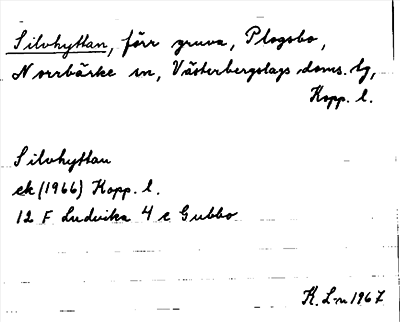 Silvhyttan, förr gruva, Plogsbo,
Norrbärke sn, Västerbergslags doms. tg,
Kopp. l.
Silvhyttan
ek (1966) Kopp. l.
12 F Ludvika 4 c Gubbo
K. L-n 1967